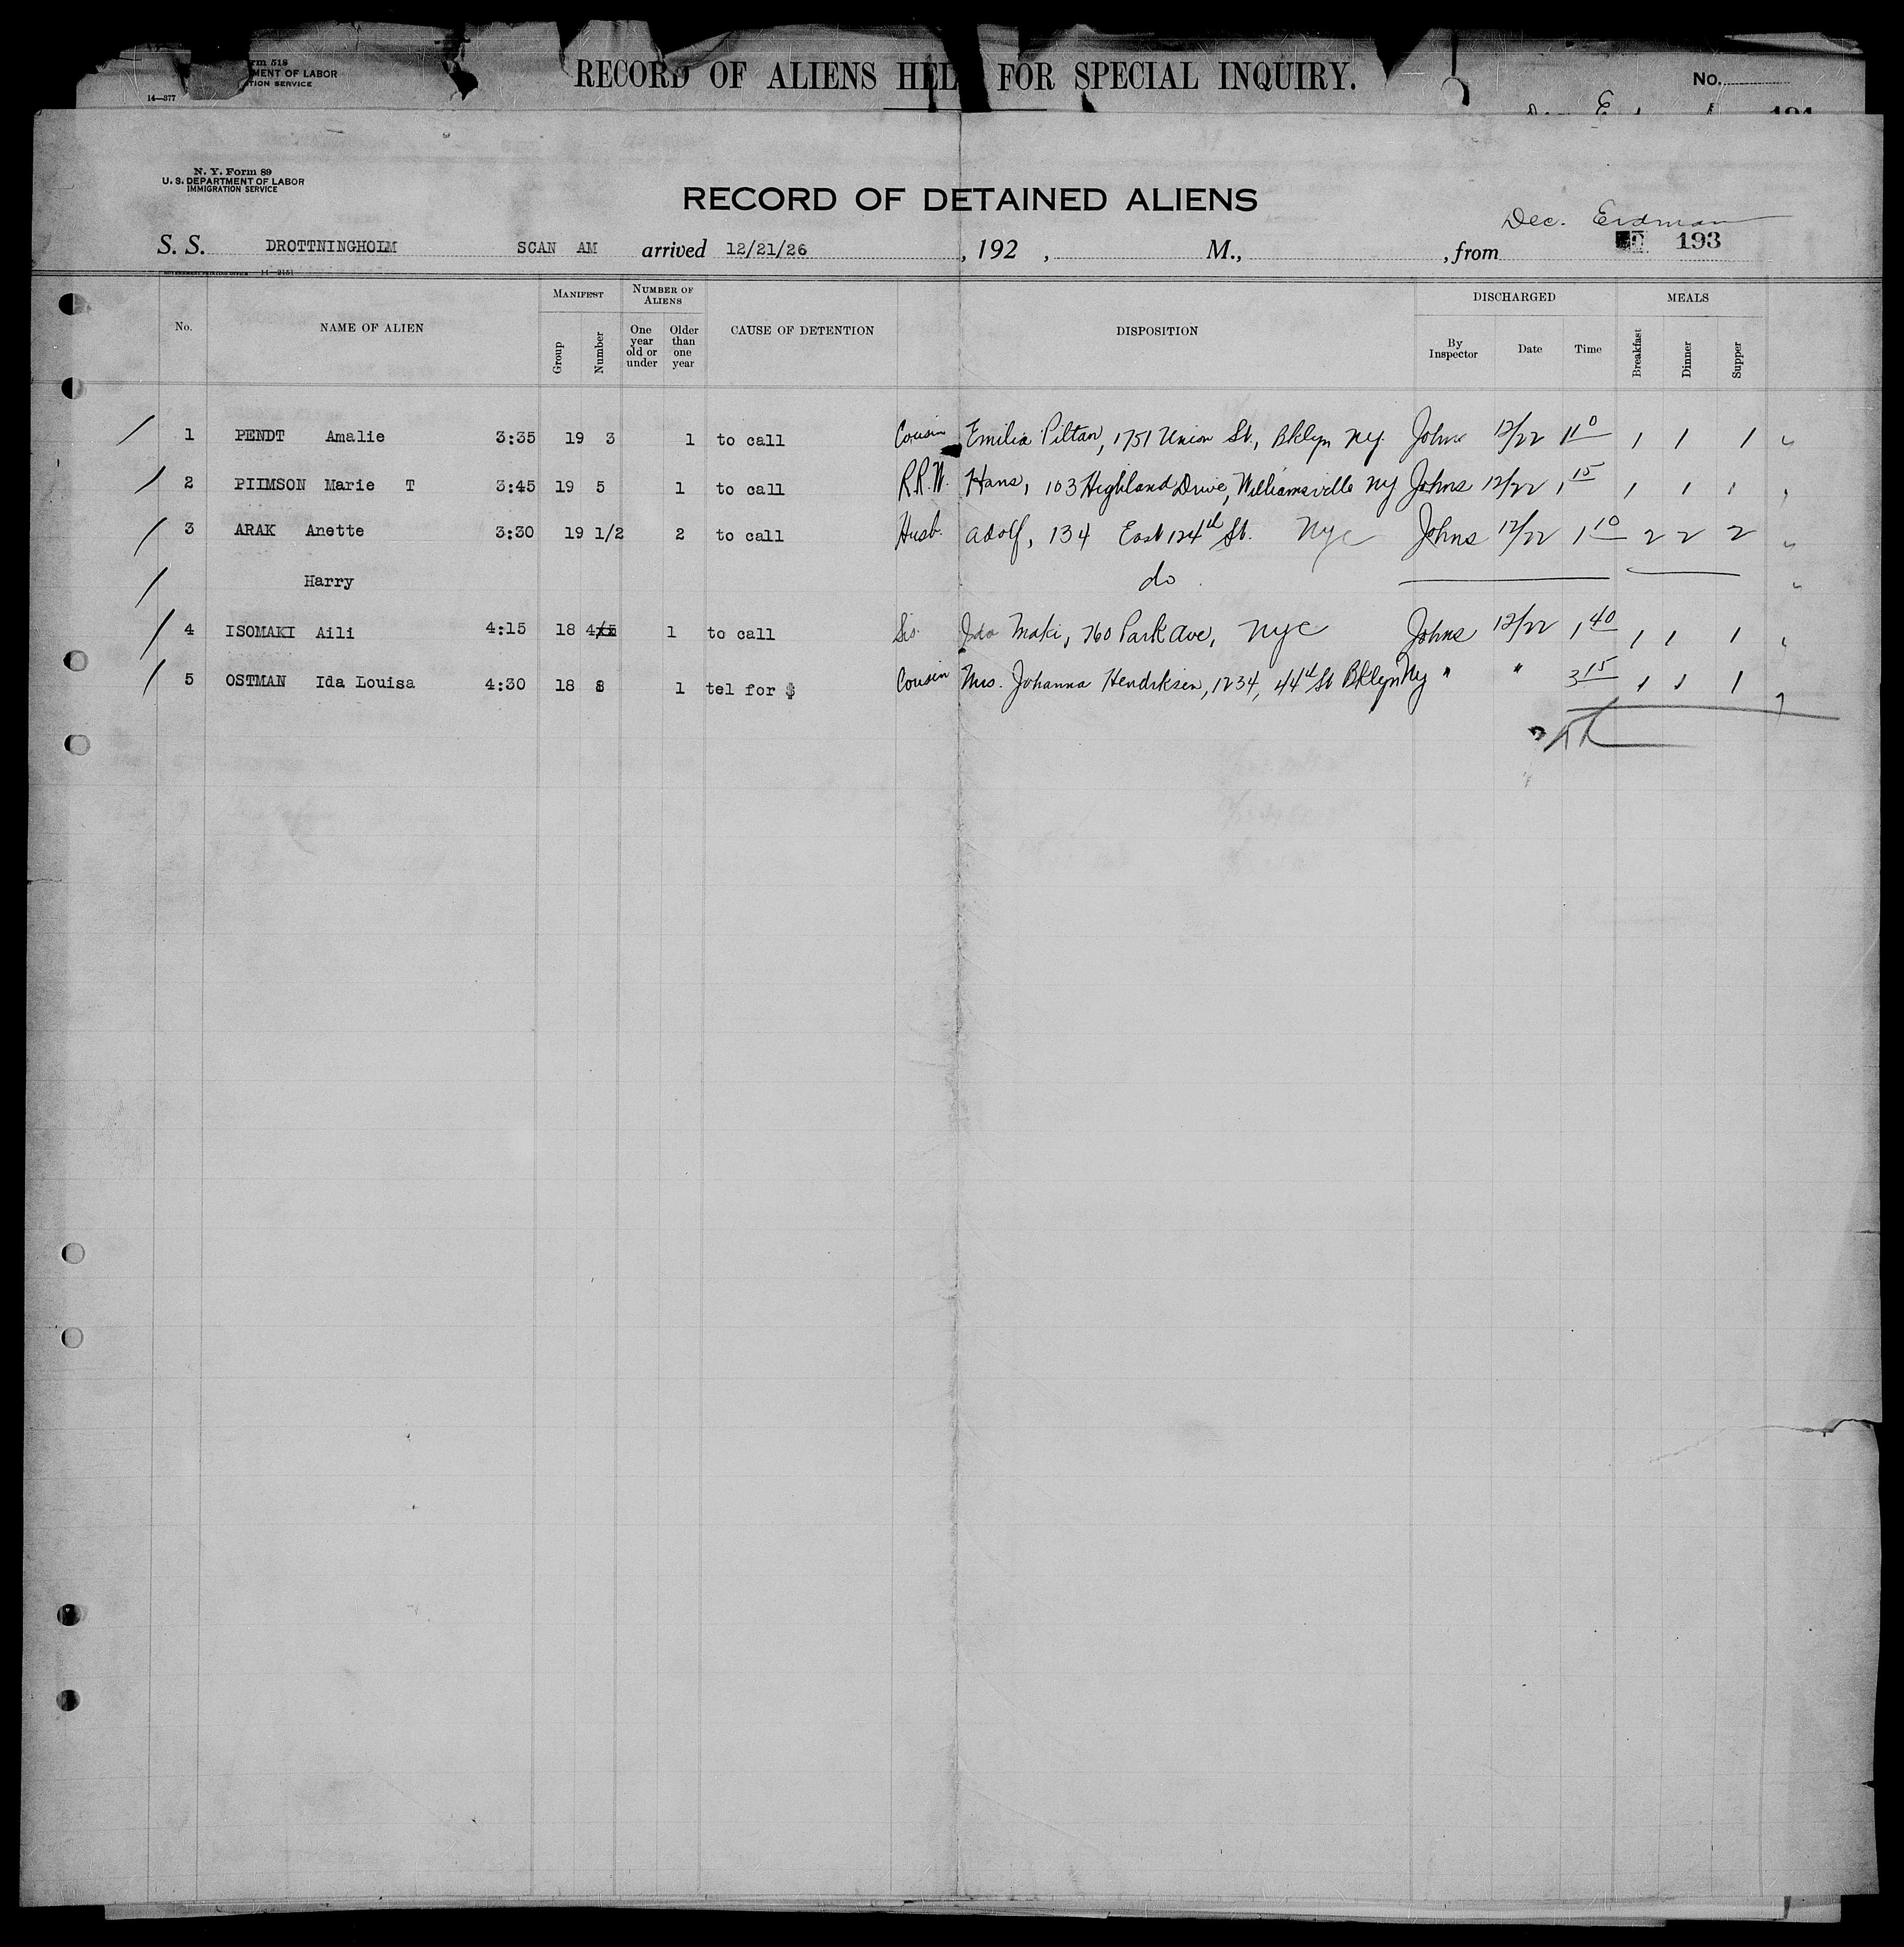 rm 518
MENT OF LABOR
TION SERVICE
14—877
RECORD OF ALIENS HEL FOR SPECIAL INQUIRY.
No.
N. Y. Form 89
U. S. DEPARTMENT OF LABOR
IMMIGRATION SERVICE
RECORD OF DETAINED ALIENS
Dec. Erdman
S. S. DROTTNINGHOLM SCAN AM arrived 12/21/26 , 192 , M., , from 193
GOVERNMENT PRINTING OFFICE 14—2151
No. NAME OF ALIEN MANIFEST Group Number NUMBER OF ALIENS One year old or under Older than one year CAUSE OF DETENTION DISPOSITION DISCHARGED By Inspector Date Time MEALS Breakfast Dinner Supper
1 PENDT Amalie 3:35 19 3 1 to call Cousin Emilia Piltan, 1751 Union St., Bklyn Ny. Johns 12/22 1 10 1 1 1
2 PIIMSON Marie T 3:45 19 5 1 to call R.R.W. Hans, 103 Highland Drive, Williamsville Ny Johns 12/22 1 15 1 1 1
3 ARAK Anette 3:30 19 1/2 2 to call Husb. Adolf, 134 East 124th St. Nyc Johns 12/22 1 10 2 2 2
Harry do
4 ISOMAKI Aili 4:15 18 4 1 to call Sis. Ida Maki, 760 Park Ave, Nyc Johns 12/22 1 40 1 1 1
5 OSTMAN Ida Louisa 4:30 18 8 1 tel for $ Cousin Mrs. Johanna Hendriksen, 1234, 44th St Bklyn Ny " " 3 15 1 1 1